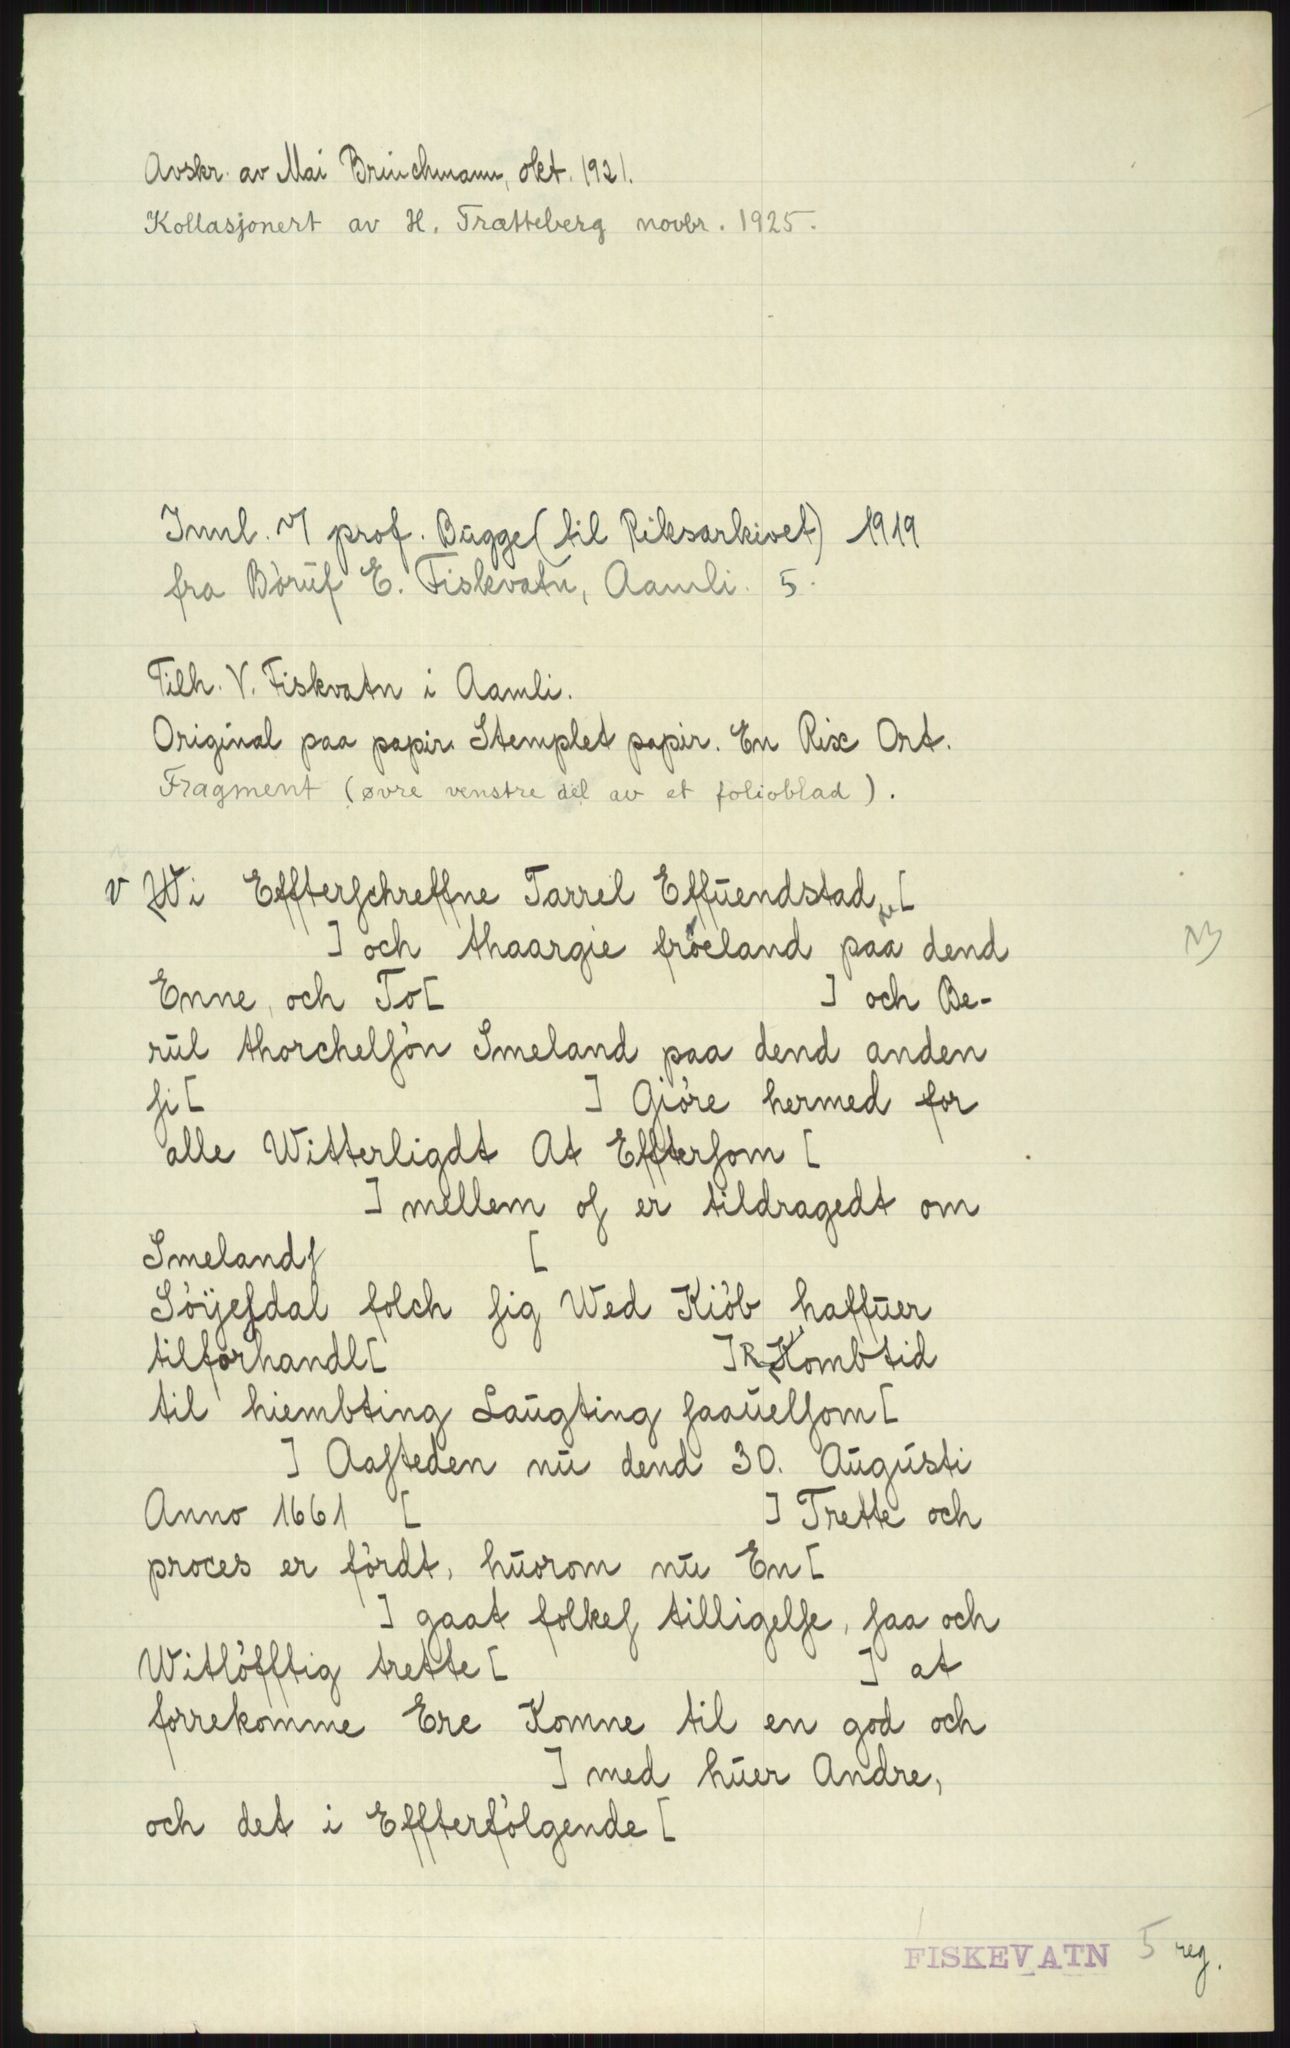 Avskr. av Mai Brinchmann, okt. 1921.
Kollasjonert av H. Trætteberg novbr. 1925.
Innl. v/ prof. Bugge (til Riksarkivet) 1919
fra Boruf E. Fiskvatn, Aamli. 5.
Tilh. V. Fiskvatn i Aamli.
Original paa papir. Stemplet papir. En Rix Ort.
Fragment (øvre venstre del av et folioblad).
v Wi Effterschreffne Tarrel Effuendstad [
] och thaargie fröeland paa dend
Enne, och To[ ] och Be-
rul thorchelsön Smeland paa dend anden
si[ ] Giöre hermed for
alle Witterligdt At Efftersom [
] mellem os er tildragedt om
Smelands [
Söÿesdal folch sig Wed Kiöb haffuer
tilforhandl[ ] Kombtid
til hiembting Laugting saauelsom [
] Aasteden nu dend 30. Augusti
Anno 1661 [ ] Trette och
proces er fördt, huorom nu En[
] gaat folkes tilligelse, saa och
Witlöfftig trette [ ] at
forrekomme Ere Komne til en god och
] med huer Andre,
och det i Effterfölgende [
FISKEVATN 5 reg.